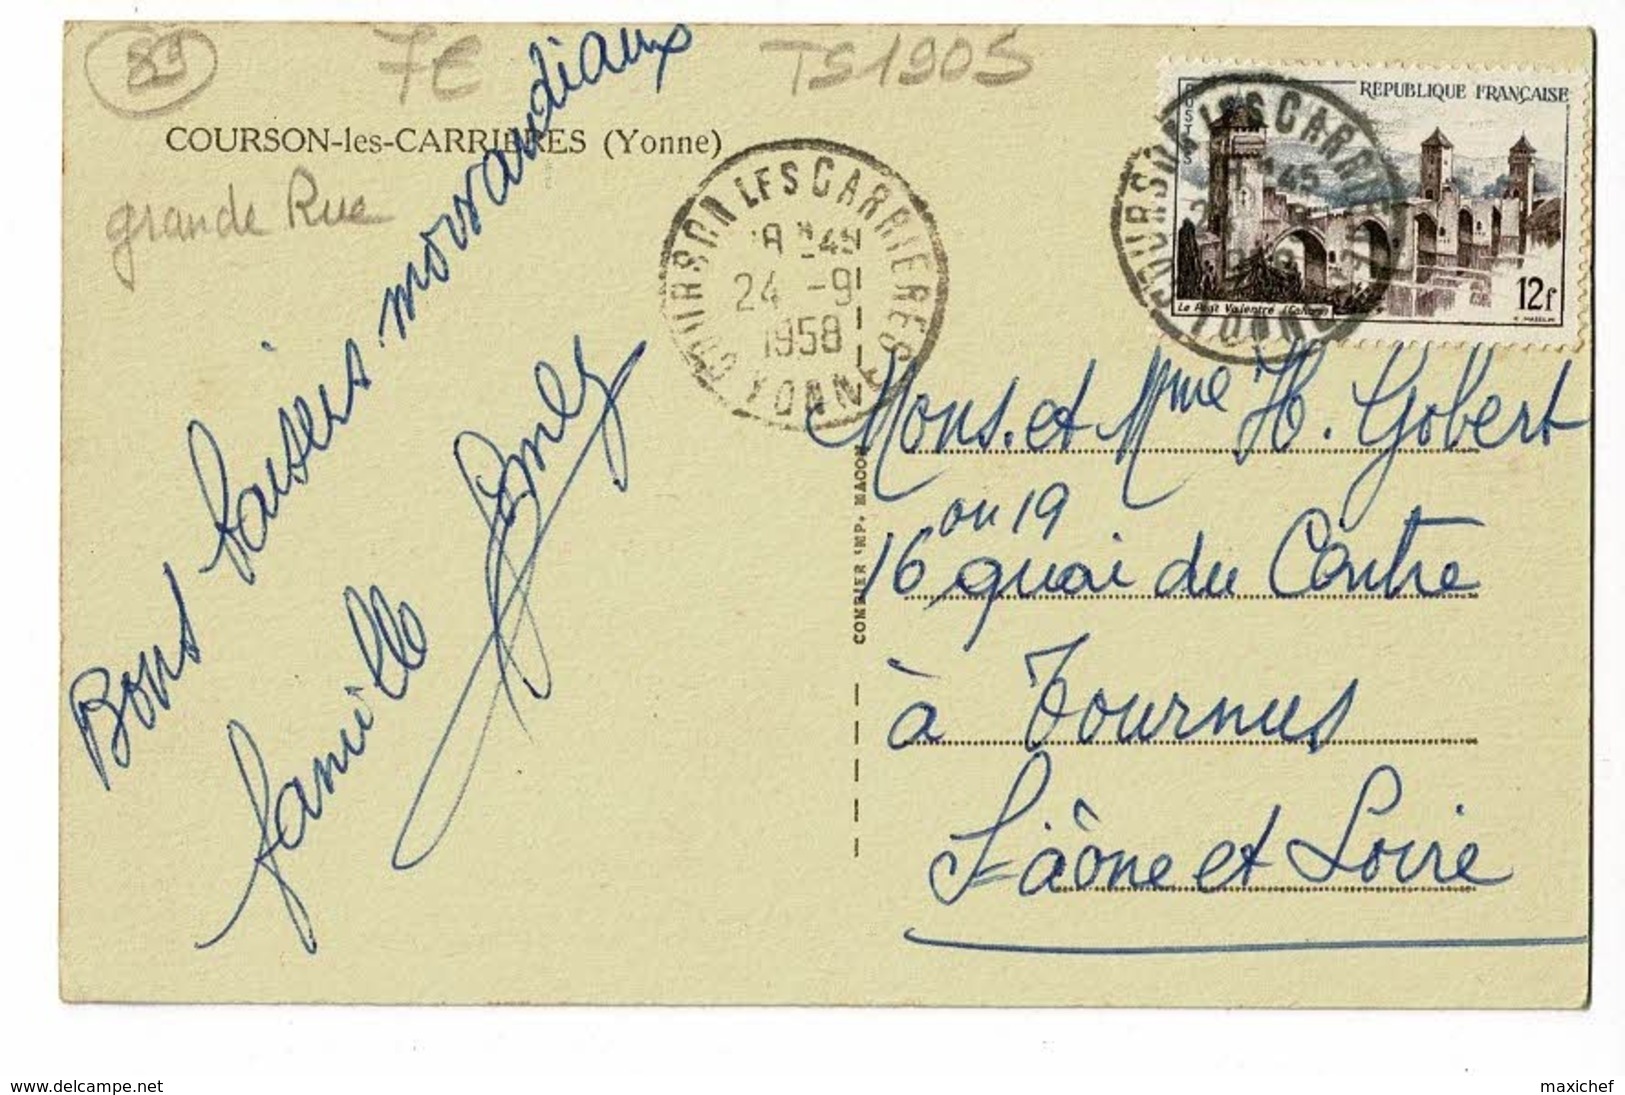 89
7€
TS1905
COURSON-les-CARRIERES (Yonne)
grande Rue
Bons baisers morvandiaux
famille
COURSON LES CARRIERES
24 -9
1958
YONNE
REPUBLIQUE FRANÇAISE
POSTES
COURSON LES CARRIERES
YONNE
Le Pont Valentré (Cahors)
12f
COMBIER IMP. MACON
Mons. et Mme H. Gobert
ou 19
16 quai du Centre
à Tournus
S=aône et Loire
www.delcampe.net
maxichef